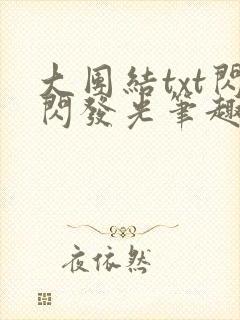 大團結txt閃
閃發光筆趣
夜依然